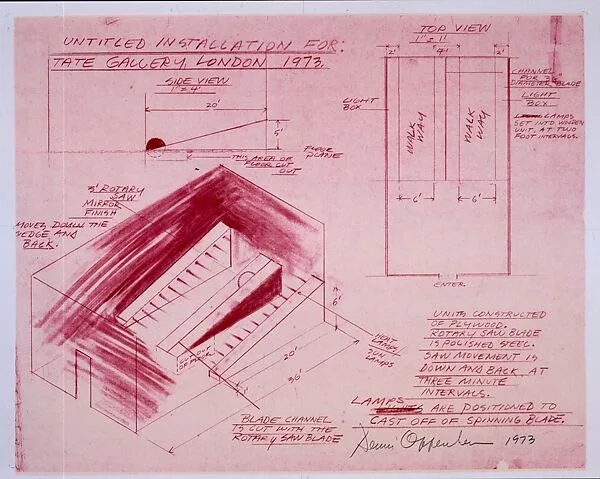 UNTITLED INSTALLATION FOR:
TATE GALLERY, LONDON 1973.
SIDE VIEW
1"=4'
20'
5'
FLOOR
PLANE
THIS AREA OF
FLOOR CUT
OUT
TOP VIEW
1"=1'
2'
4'
2'
CHANNEL
FOR 3'
DIAMETER BLADE
LIGHT
BOX
LIGHT
BOX
LAMPS
SET INTO WOODEN
UNIT, AT TWO
FOOT INTERVALS.
WALK
WAY
WALK
WAY
6'
6'
ENTER
3' ROTARY
SAW
MIRROR
FINISH
MOVES DOWN THE
WEDGE AND
BACK.
6'
20'
36'
HEAT
LAMPS/
SUN
LAMPS
CUT OUT
OF FLOOR
BLADE CHANNEL
IS CUT WITH THE
ROTARY SAW BLADE
UNITS CONSTRUCTED
OF PLYWOOD.
ROTARY SAW BLADE
IS POLISHED STEEL.
SAW MOVEMENT IS
DOWN AND BACK AT
THREE MINUTE
INTERVALS.
LAMPS ARE POSITIONED TO
CAST OFF OF SPINNING BLADE.
Dennis Oppenheim 1973